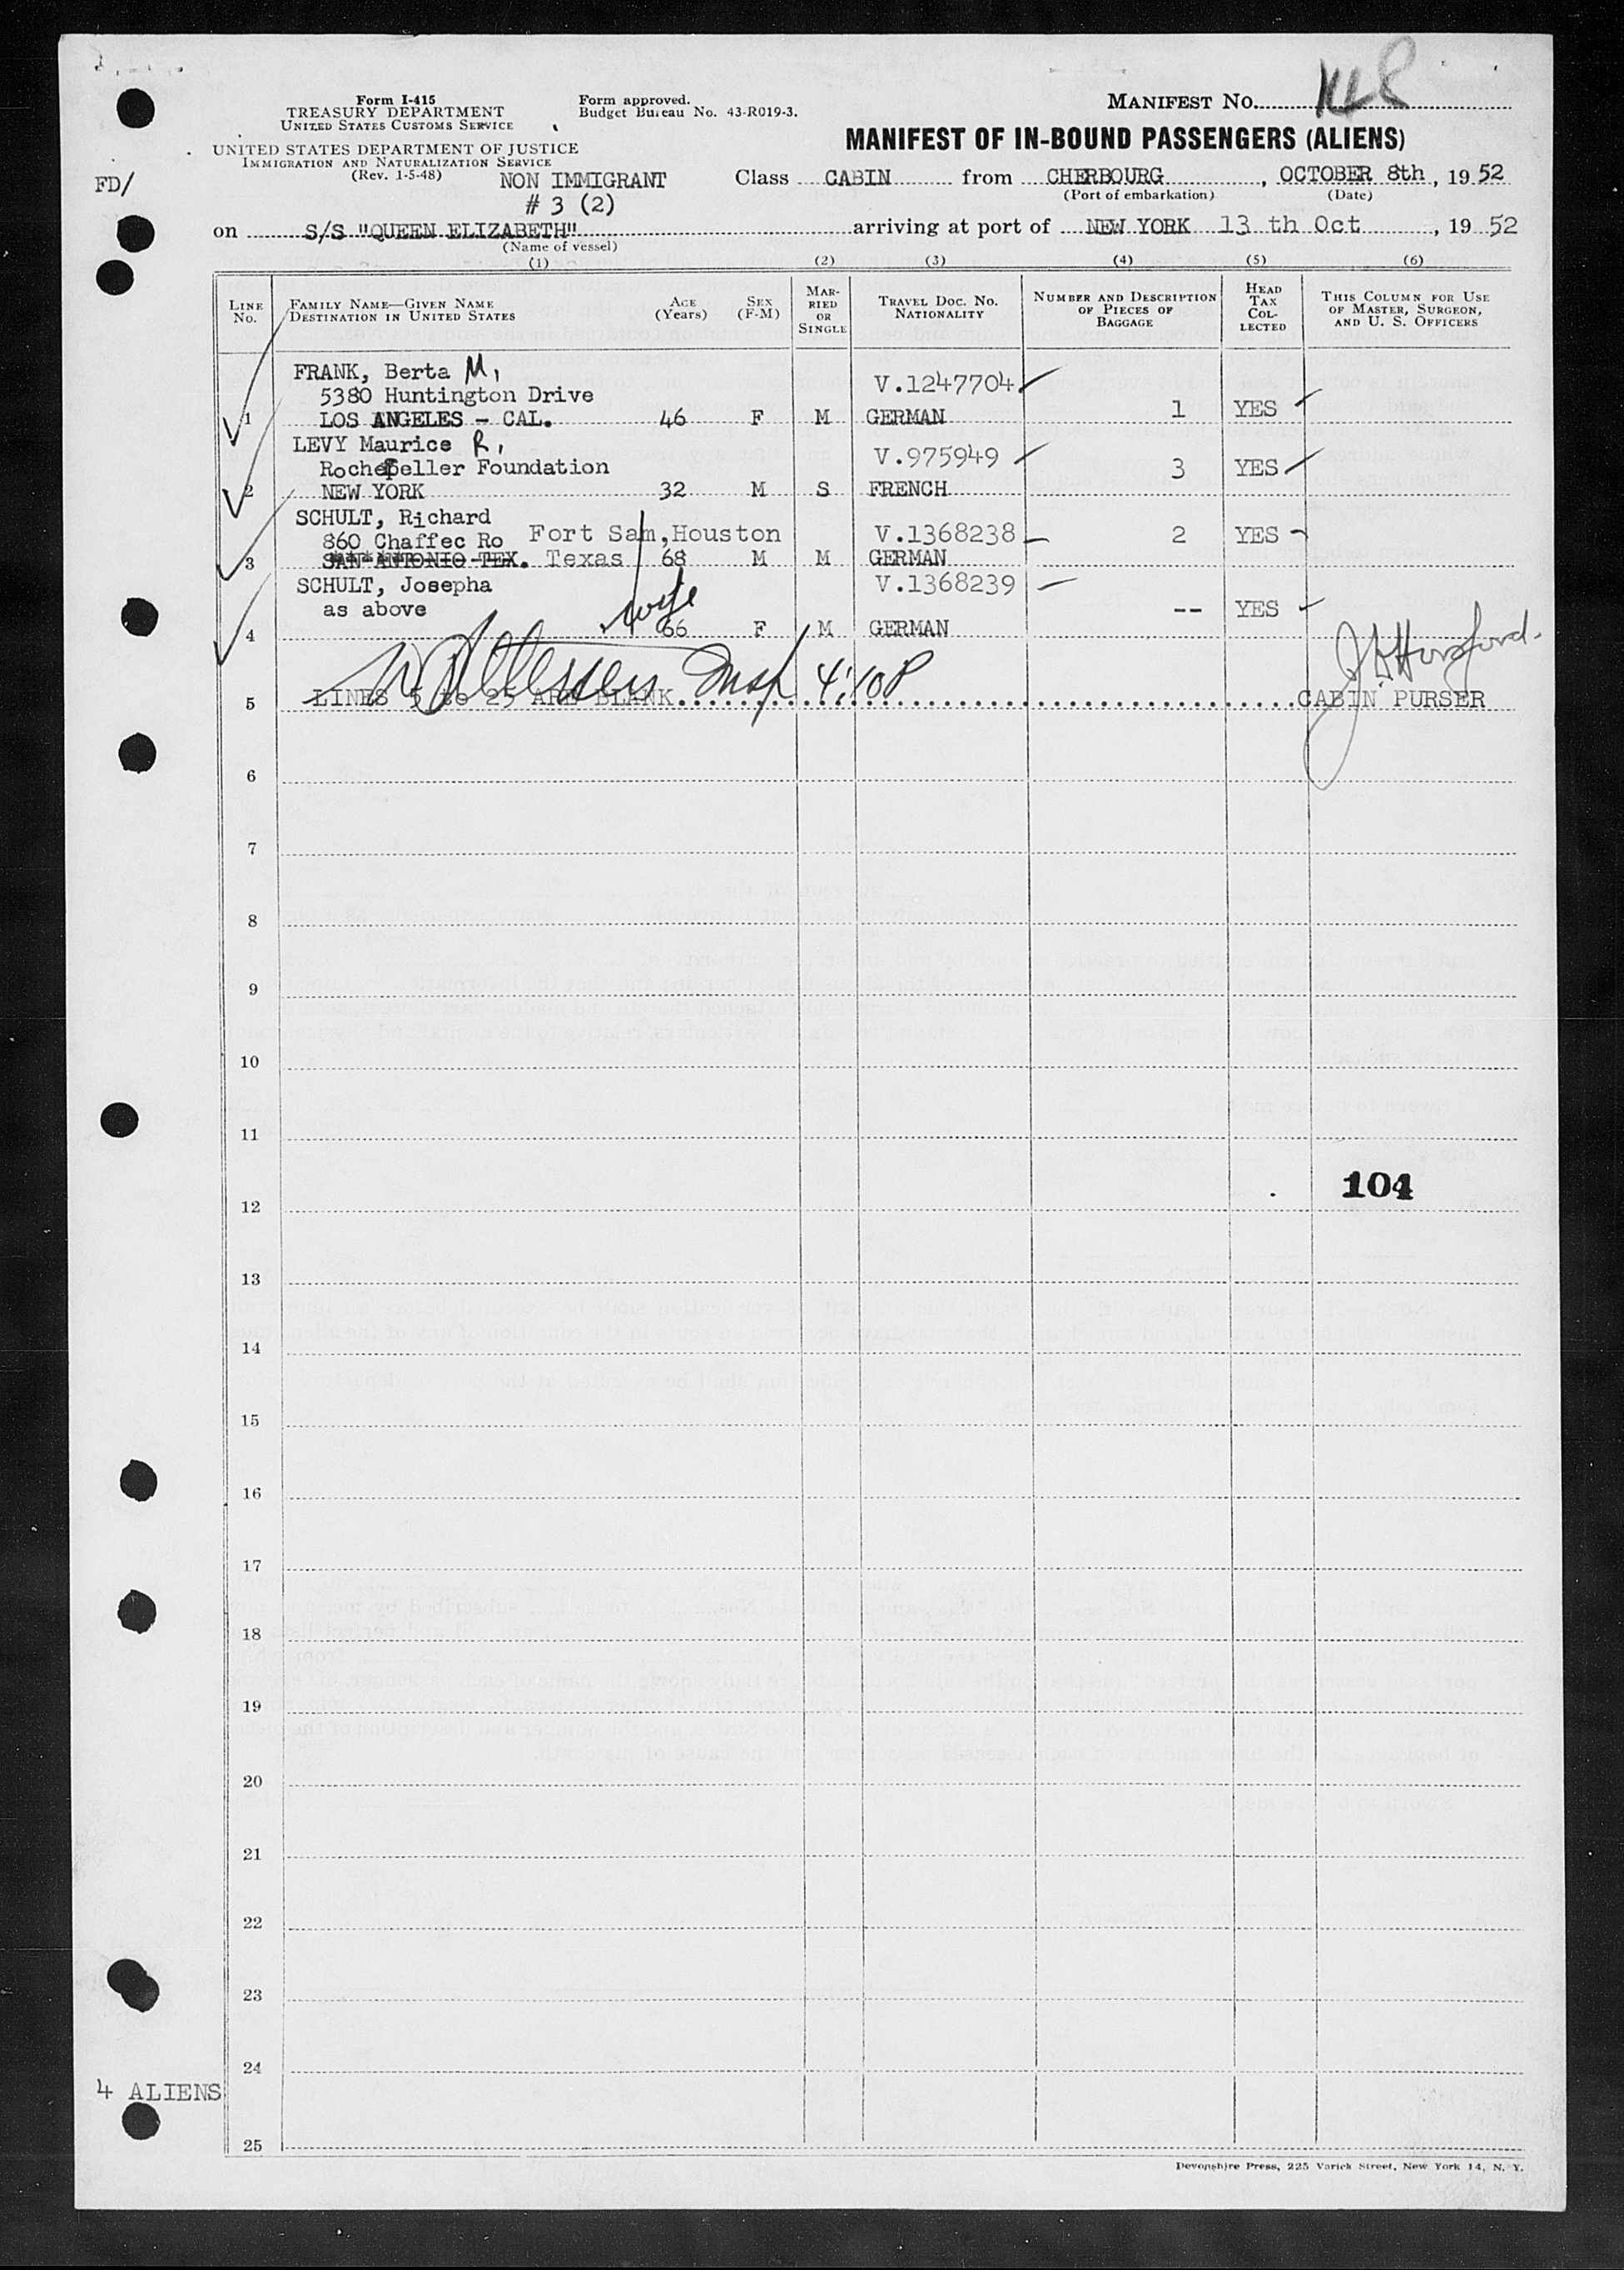 MANIFEST NO.
Form I-415
TREASURY DEPARTMENT
UNITED STATES CUSTOMS SERVICE
Form approved.
Budget Bureau No. 43-R019-3.
MANIFEST OF IN-BOUND PASSENGERS (ALIENS)
UNITED STATES DEPARTMENT OF JUSTICE
IMMIGRATION AND NATURALIZATION SERVICE
(Rev. 1-5-48)
FD/
NON IMMIGRANT
# 3 (2)
Class CABIN from CHERBOURG, OCTOBER 8th, 1952
(Port of embarkation) (Date)
on S/S "QUEEN ELIZABETH" arriving at port of NEW YORK 13 th Oct, 1952
(Name of vessel)
(1) (2) (3) (4) (5) (6)
LINE NO. FAMILY NAME—GIVEN NAME DESTINATION IN UNITED STATES AGE (YEARS) SEX (F-M) MARRIED OR SINGLE TRAVEL DOC. NO. NATIONALITY NUMBER AND DESCRIPTION OF PIECES OF BAGGAGE HEAD TAX COLLECTED THIS COLUMN FOR USE OF MASTER, SURGEON, AND U. S. OFFICERS
FRANK, Berta M, V.1247704
5380 Huntington Drive
1 LOS ANGELES - CAL. 46 F M GERMAN 1 YES
LEVY Maurice R, V.975949
Rockefeller Foundation 3 YES
2 NEW YORK 32 M S FRENCH
SCHULT, Richard
860 Chaffec Ro Fort Sam,Houston V.1368238 2 YES
3 SAN ANTONIO TEX. Texas 68 M M GERMAN
SCHULT, Josepha V.1368239
as above wife -- YES
4 66 F M GERMAN
Insp 4:10P
5 LINES 5 to 25 ARE BLANK CABIN PURSER
6
7
8
9
10
11
104
12
13
14
15
16
17
18
19
20
21
22
23
24
4 ALIENS
25
Devonshire Press, 225 Varick Street, New York 14, N. Y.